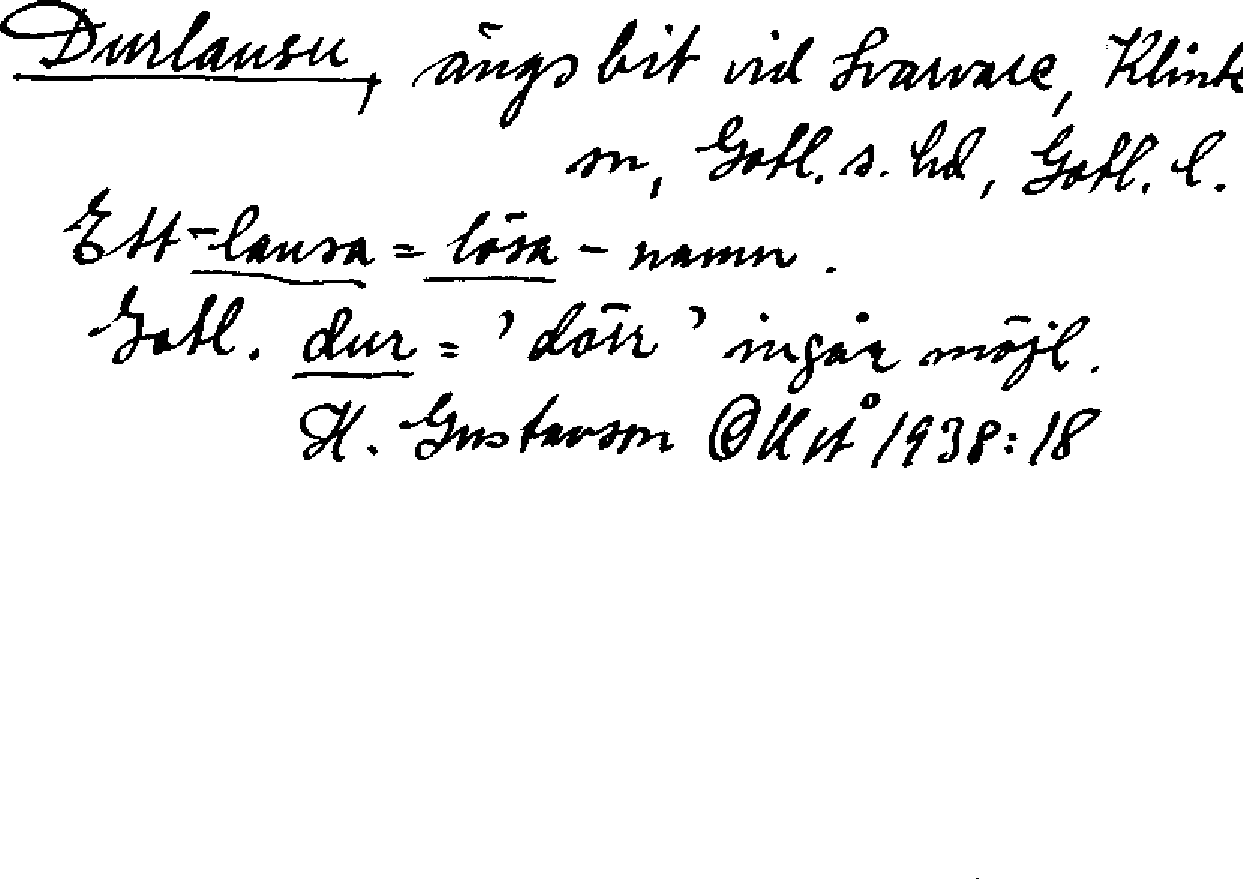 Durlausu, ängsbit vid Svarvare, Klinte
sn, Gotl. s. hd, Gotl. l.
Ett -lausa = lösa - namn.
Gotl. dur = 'dörr' ingår möjl.
H. Gustavson OKvå 1938:18